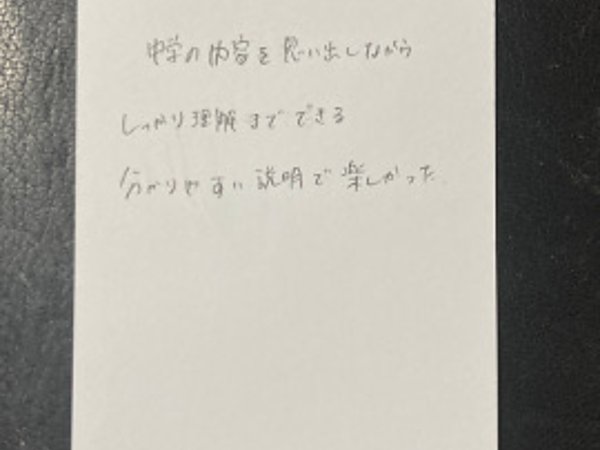 中学の内容を思い出しながら
しっかり理解までできる
分かりやすい説明で楽しかった